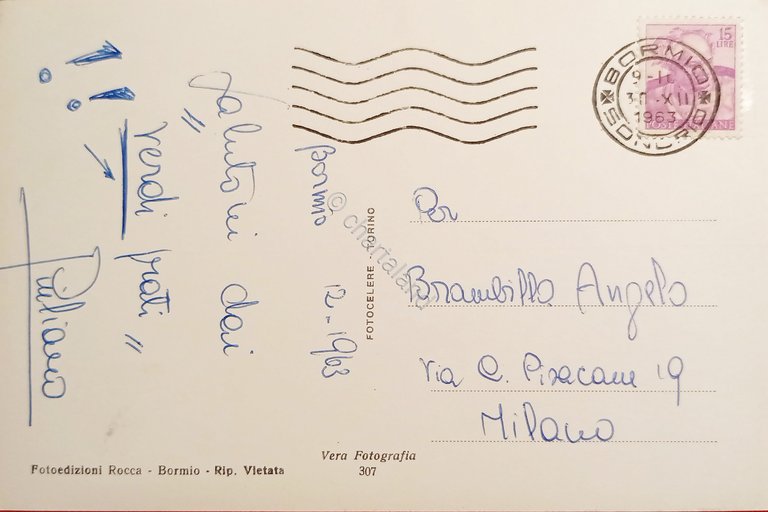 Bormio 12-1963
Saluti dai
" verdi prati "
!!
Giuliano
FOTOCELERE - TORINO
© chartaland
15
LIRE
BORMIO
9-11
30.XII
1963
SONDRIO
Per
Brambilla Angelo
Via C. Pisacane 19
Milano
Vera Fotografia
307
Fotoedizioni Rocca - Bormio - Rip. Vietata